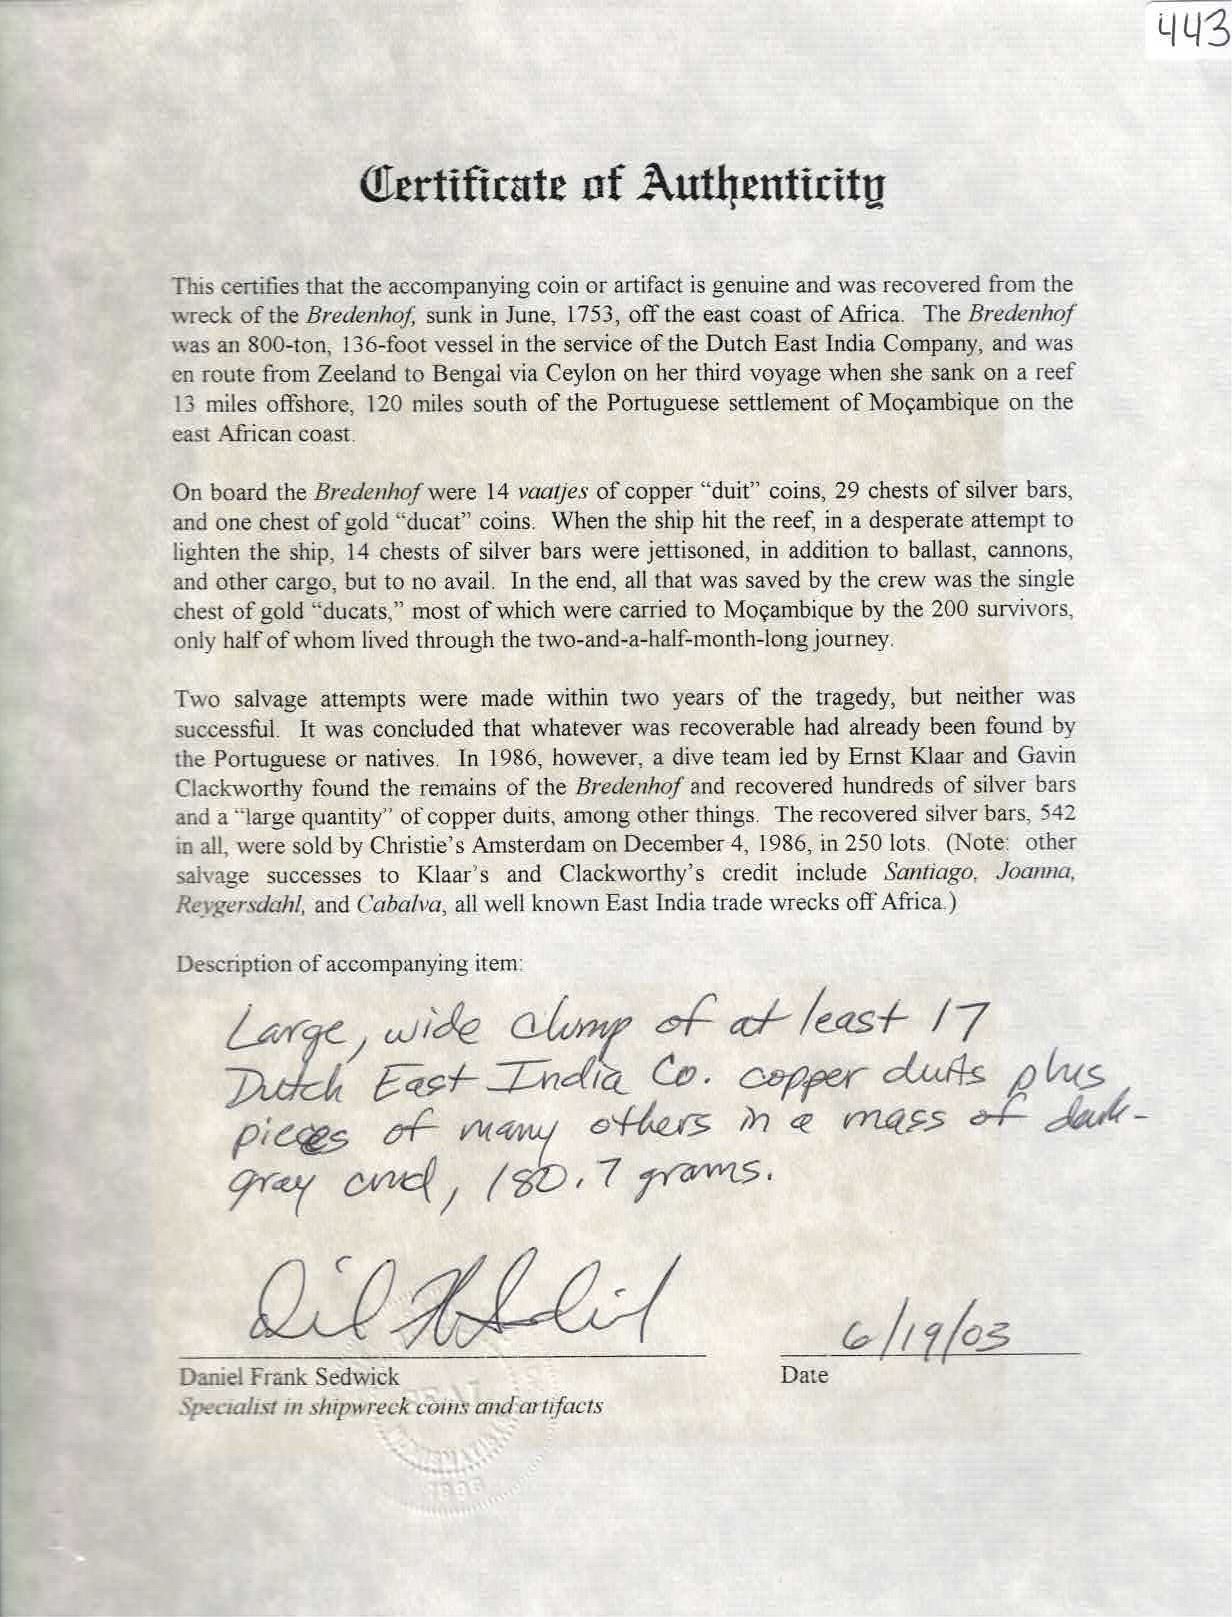 443
Certificate of Authenticity
This certifies that the accompanying coin or artifact is genuine and was recovered from the
wreck of the Bredenhof, sunk in June, 1753, off the east coast of Africa. The Bredenhof
was an 800-ton, 136-foot vessel in the service of the Dutch East India Company, and was
en route from Zeeland to Bengal via Ceylon on her third voyage when she sank on a reef
13 miles offshore, 120 miles south of the Portuguese settlement of Moçambique on the
east African coast.
On board the Bredenhof were 14 vaatjes of copper “duit” coins, 29 chests of silver bars,
and one chest of gold “ducat” coins. When the ship hit the reef, in a desperate attempt to
lighten the ship, 14 chests of silver bars were jettisoned, in addition to ballast, cannons,
and other cargo, but to no avail. In the end, all that was saved by the crew was the single
chest of gold “ducats,” most of which were carried to Moçambique by the 200 survivors,
only half of whom lived through the two-and-a-half-month-long journey.
Two salvage attempts were made within two years of the tragedy, but neither was
successful. It was concluded that whatever was recoverable had already been found by
the Portuguese or natives. In 1986, however, a dive team led by Ernst Klaar and Gavin
Clackworthy found the remains of the Bredenhof and recovered hundreds of silver bars
and a “large quantity” of copper duits, among other things. The recovered silver bars, 542
in all, were sold by Christie’s Amsterdam on December 4, 1986, in 250 lots. (Note: other
salvage successes to Klaar’s and Clackworthy’s credit include Santiago, Joanna,
Reygersdahl, and Cabalva, all well known East India trade wrecks off Africa.)
Description of accompanying item:
Large, wide clump of at least 17
Dutch East India Co. copper duits plus
pieces of many others in a mass of dark-
gray crud, 180.7 grams.
6/19/03
Daniel Frank Sedwick
Date
Specialist in shipwreck coins and artifacts